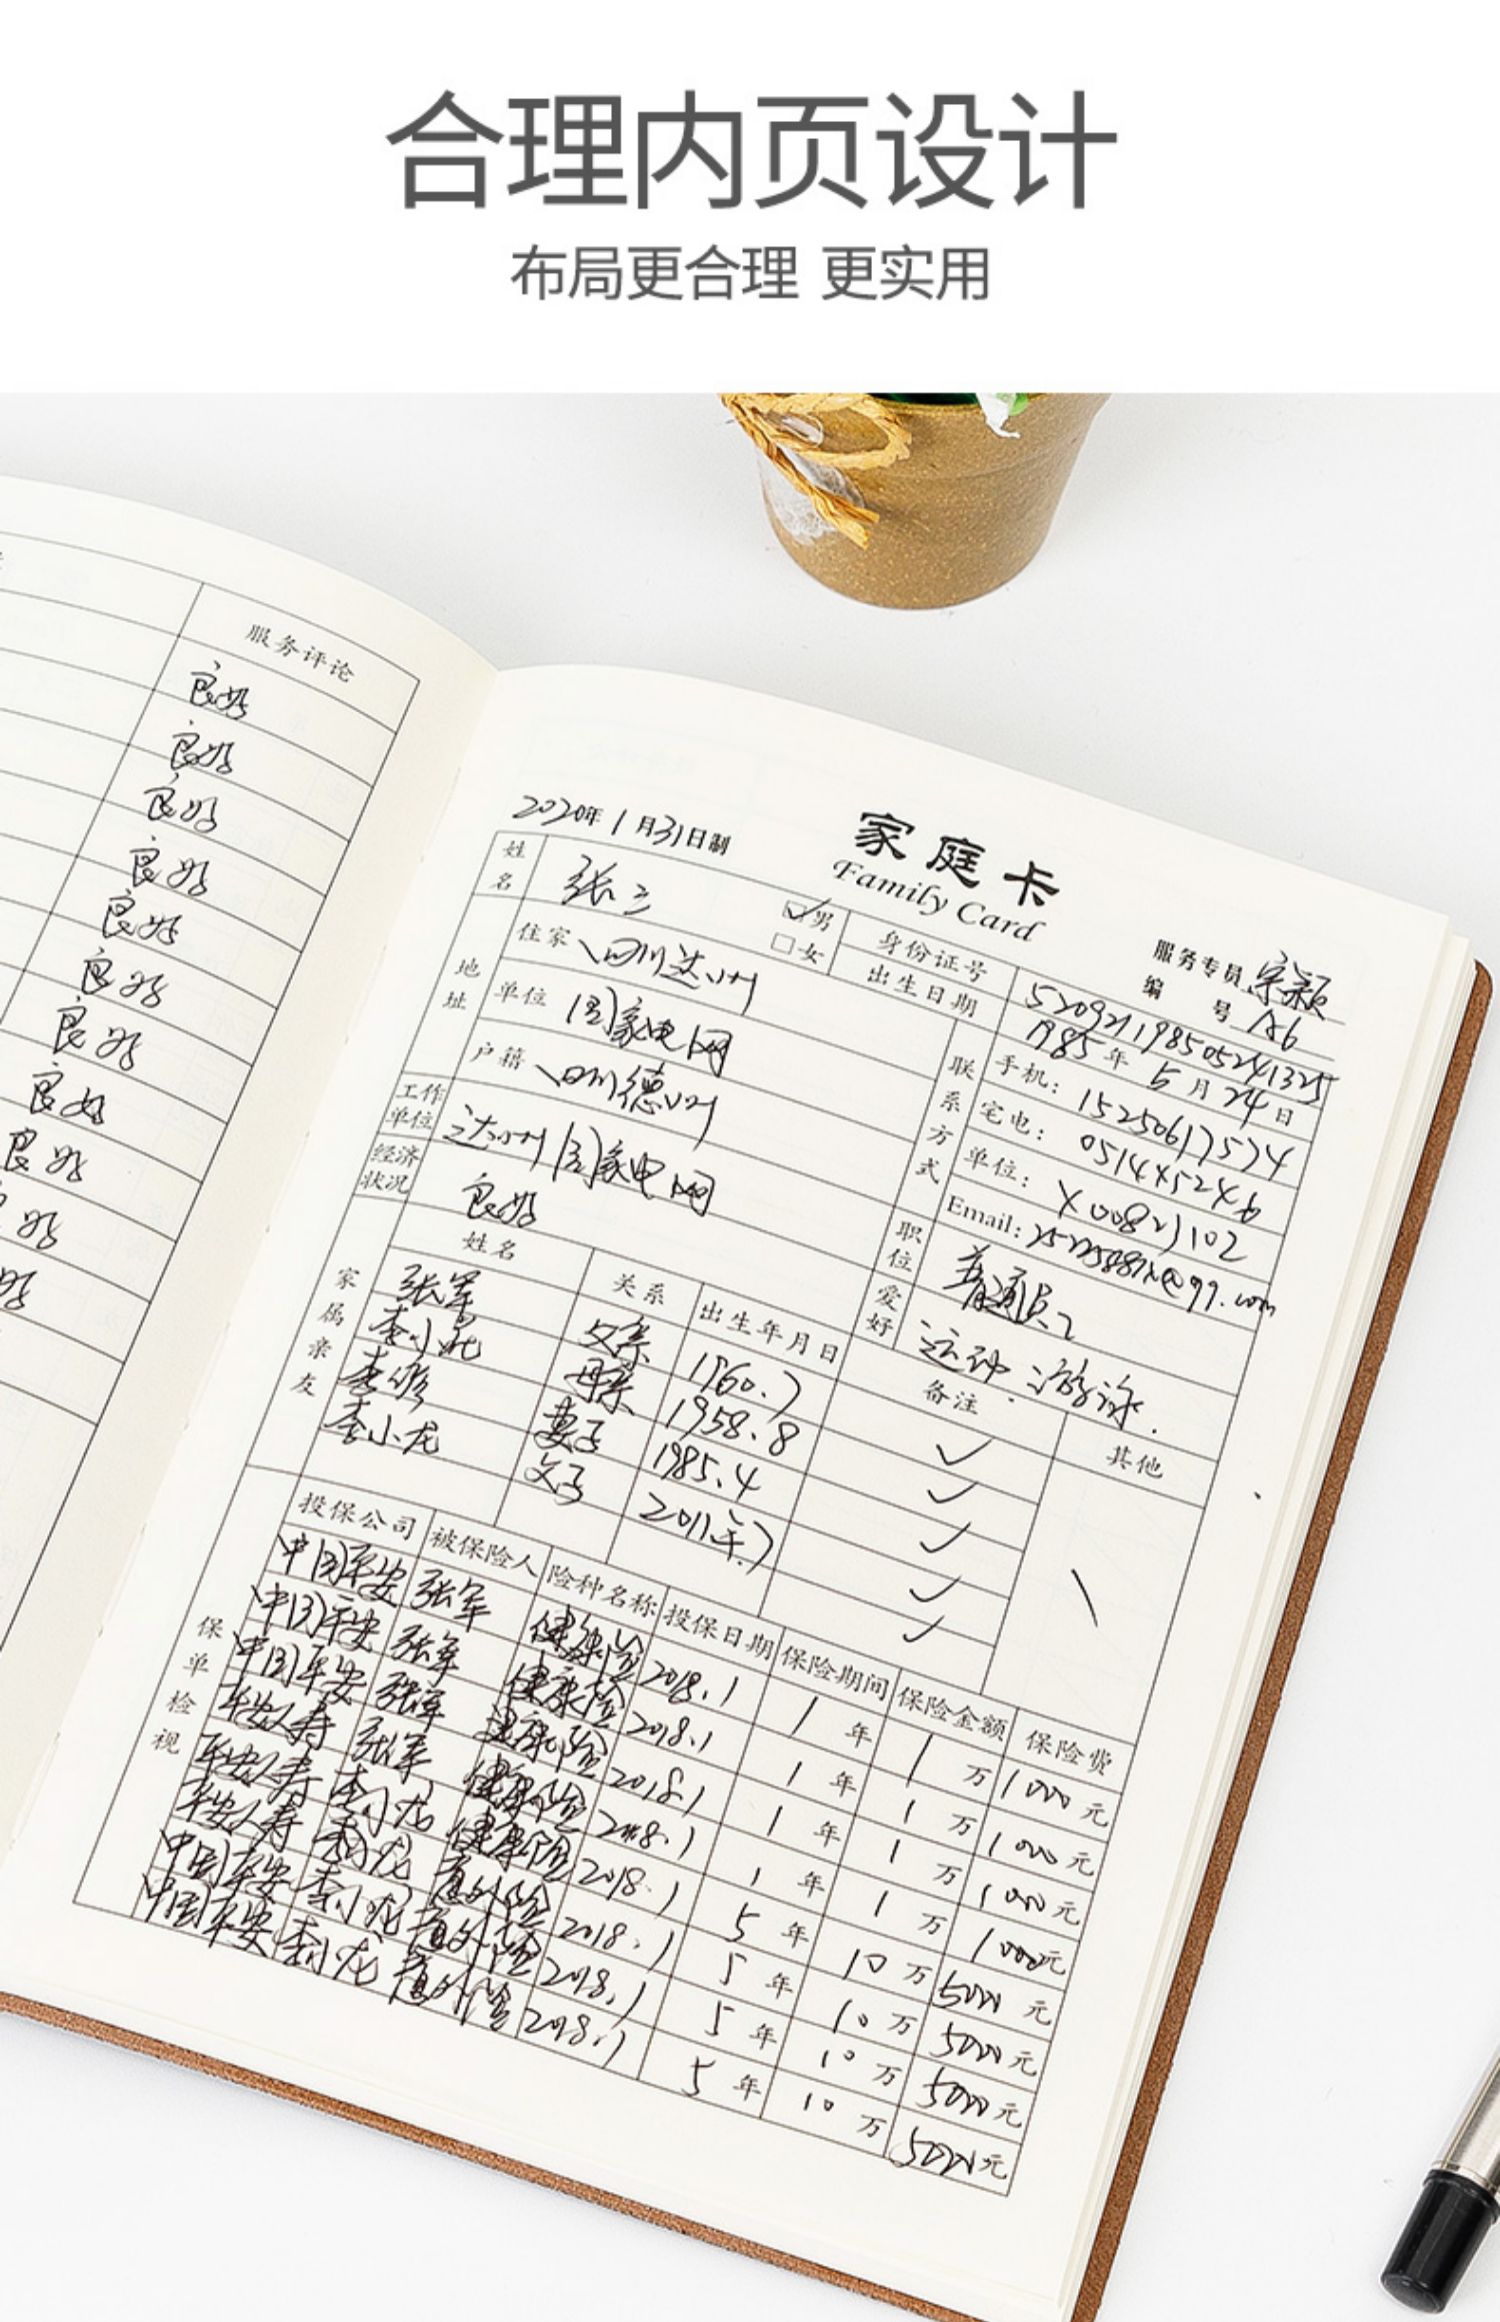 合理内页设计
布局更合理 更实用
服务评论
良好
良好
良好
良好
良好
良好
良好
良好
良好
2020年1月31日制
家庭卡
Family Card
服务专员
编 号 A6
姓名 张三 男 女 身份证号
出生日期 1985年5月24日
地址 住家 四川达州
单位 国家电网
户籍 四川德州
工作单位 达州国家电网
经济状况 良好
联系方式 手机: 15250617574
宅电:
单位: X00821102
Email:
职位 普通员工
爱好 运动 游泳.
家属亲友 姓名 关系 出生年月日 备注 其他
张军 父亲 1960.7
母亲 1958.8
妻子 1985.4
李小龙 父子 2011年.7
保单检视 投保公司 被保险人 险种名称 投保日期 保险期间 保险金额 保险费
中国平安 张军 健康险 2018.1 1年 1万 1000元
中国平安 张军 健康险 2018.1 1年 1万 1000元
中国平安 张军 健康险 2018.1 1年 1万 1000元
平安人寿 张军 健康险 2018.1 1年 1万 1000元
平安人寿 李小龙 健康险 2018.1 5年 10万 5000元
平安人寿 李小龙 意外险 2018.1 5年 10万 5000元
中国平安 李小龙 意外险 2018.1 5年 10万 5000元
中国平安 李小龙 意外险 2018.1 5年 10万 5000元